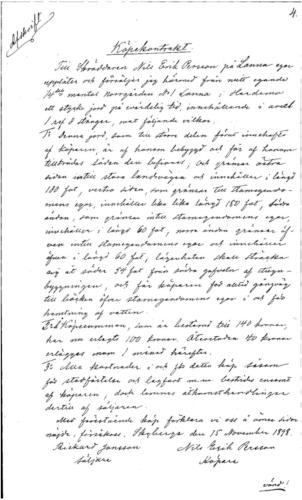 Afskrift
4.
Köpekontrakt.
Till Skräddaren Nils Erik Persson på Lanna egor
upplåter och försäljer jag härmed från mitt egande
1/4dels mantal Norrgården No 1 Lanna i Hardemo
ett stycke jord på evärdelig tid, innehållande i areal
1 ref 8 stänger, mot följande vilkor.
1o denne jord, som till större delen förut innehafts
af köparen, är af honom bebygd och får af honom
tillträdas sådan den befinnes, och gränsar östra
sidan intill stora landsvägen och innehåller i längd
180 fot, vestra sidan, som gränsar till stamegendo-
mens egor, innehåller like lika längd 180 fot, södra
ändan, som gränsar intill stamegendomens egor,
innehåller i längd 60 fot, norra ändan gränsar äf-
ven intill stamegendomens egor och innehåller
äfven i längd 60 fot, lägenheten skall sträcka
sig åt söder 54 fot från södra gafveln af stugu-
byggningen, och får köparen fod alltid gångväg
till bäcken öfver stamegendomens egor i och för
hemtning af vatten.
2o Köpesumman, som är bestämd till 140 kronor,
har nu erlagts 100 kronor. Återstoden 40 kronor
erlägges inom 1 månad härefter.
3o Alla kostnader i och för detta köp såsom
för stadfästelse och lagfart m.m. bestrides ensamt
af köparen, dock lemnas åtkomsthandlingar
dertill af säljaren.
Med förestående köp förklara vi oss å ömse sidor
nöjde, försäkras. Skyberga den 15 November 1898.
Rickard Jansson Nils Erik Persson
Säljare Köpare
vänd!